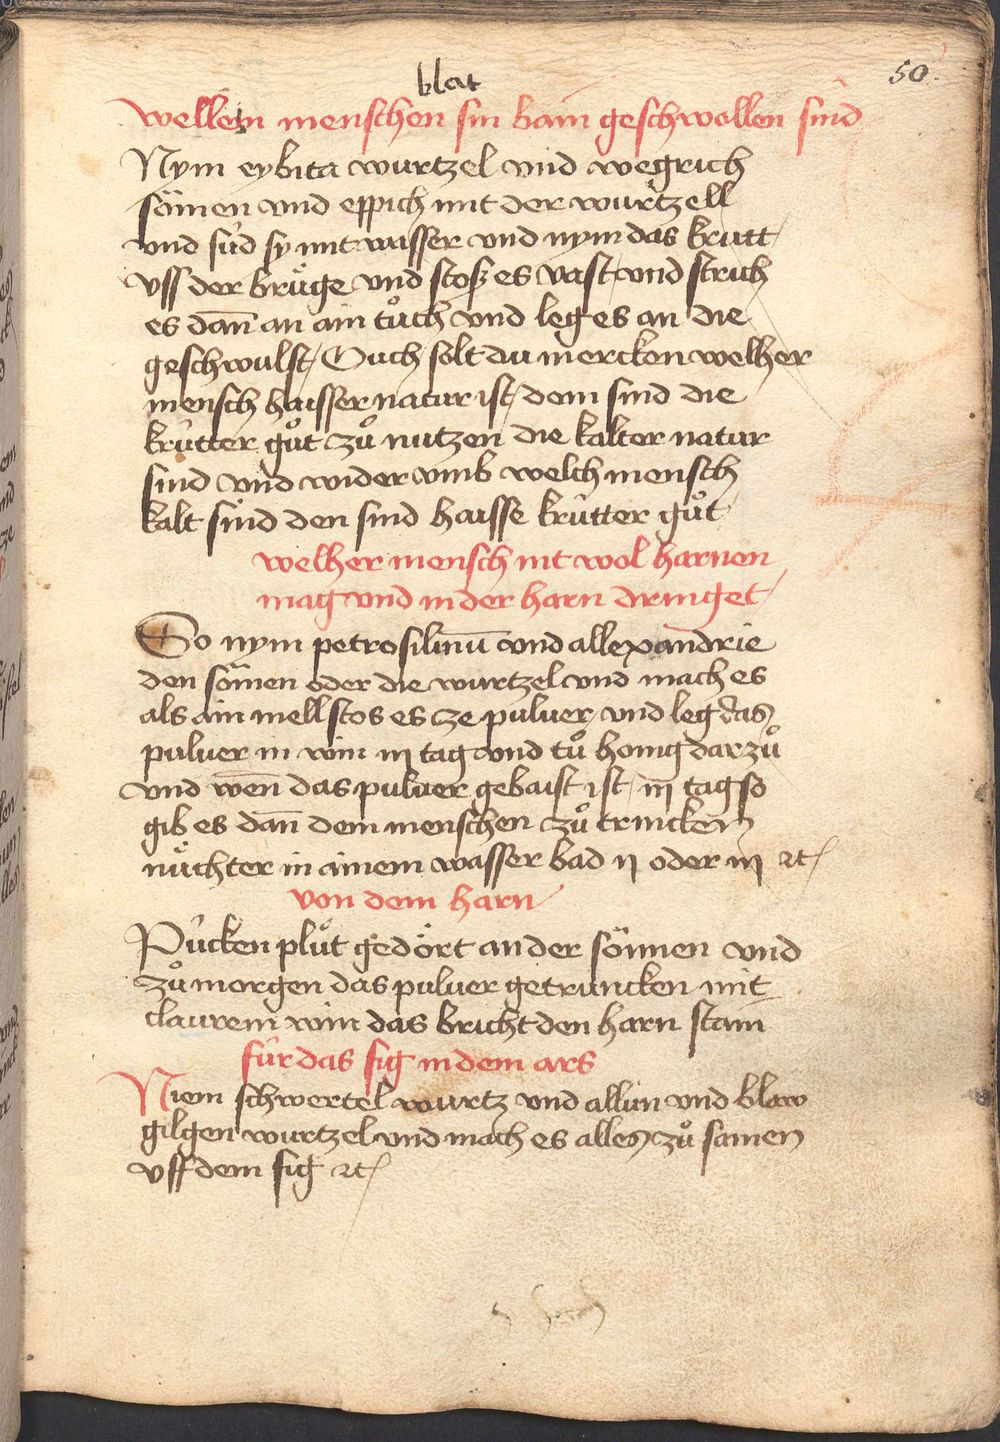 blat
50.
wellem menschen sin bain geschwollen sind
Nym eybita wurtzel vnd wegrich
sömen vnd eppich mit der wurtzell
vnd süd sy mit wasser vnd nym das krutt
vff der brüge vnd stoß es vast vnd strich
es dan̄ an ain tůch vnd leg es an die
geschwulst / Ouch solt du mercken welher
mensch haisser natur ist / dem sind die
krütter gůt zů nutzen die kalter natur
sind vnd wider vmb welch mensch
kalt sind den sind haisse krütter gůt
welher mensch nit wol harnen
mag vnd in der harn dringet
So nym petrosilinū vnd allexandrie
den sömen oder die wurtzel vnd mach es
als ain mell stos es ze puluer / vnd leg das
puluer in win iij tag vnd tů honig dar zů
vnd wen̄ das puluer gebaist ist / iij tag so
gib es dan̄ dem menschen zů trincken
nüchter in ainem wasser bad ij oder iij ꝛc
von dem harn
Pücken plůt gedört an der sönnen vnd
zů morgen das puluer getruncken mit
claurem win das bricht den harn stain
für das fig in dem ars
Niem schwertel wurtz vnd allun vnd blaw
gilgen wurtzel vnd mach es alles zů samen
vff dem fig ꝛc